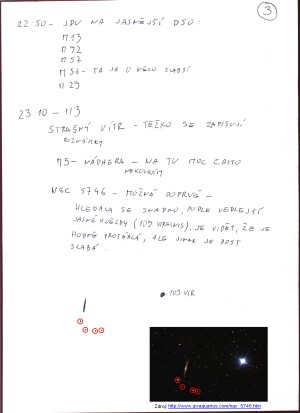 3
22:50 - JDU NA JASNĚJŠÍ DSO:
M13
M92
M57
M56 - TA JE O NĚCO SLABŠÍ
M29
23:10 - M3
STRAŠNÝ VÍTR - TĚŽKO SE ZAPISUJÍ
POZNÁMKY
M5 - NÁDHERA - NA TU MOC ČASTO
NEKOUKÁM
NGC 5746 - MOŽNÁ POPRVÉ -
HLEDALA SE SNADNO, PODLE VEDLEJŠÍ
JASNÉ HVĚZDY (109 VIRGINIS). JE VIDĚT, ŽE JE
HODNĚ PROTÁHLÁ, ALE JINAK JE DOST
SLABÁ.
109 VIR
Zdroj: http://www.avaquarius.com/ngc_5746.htm